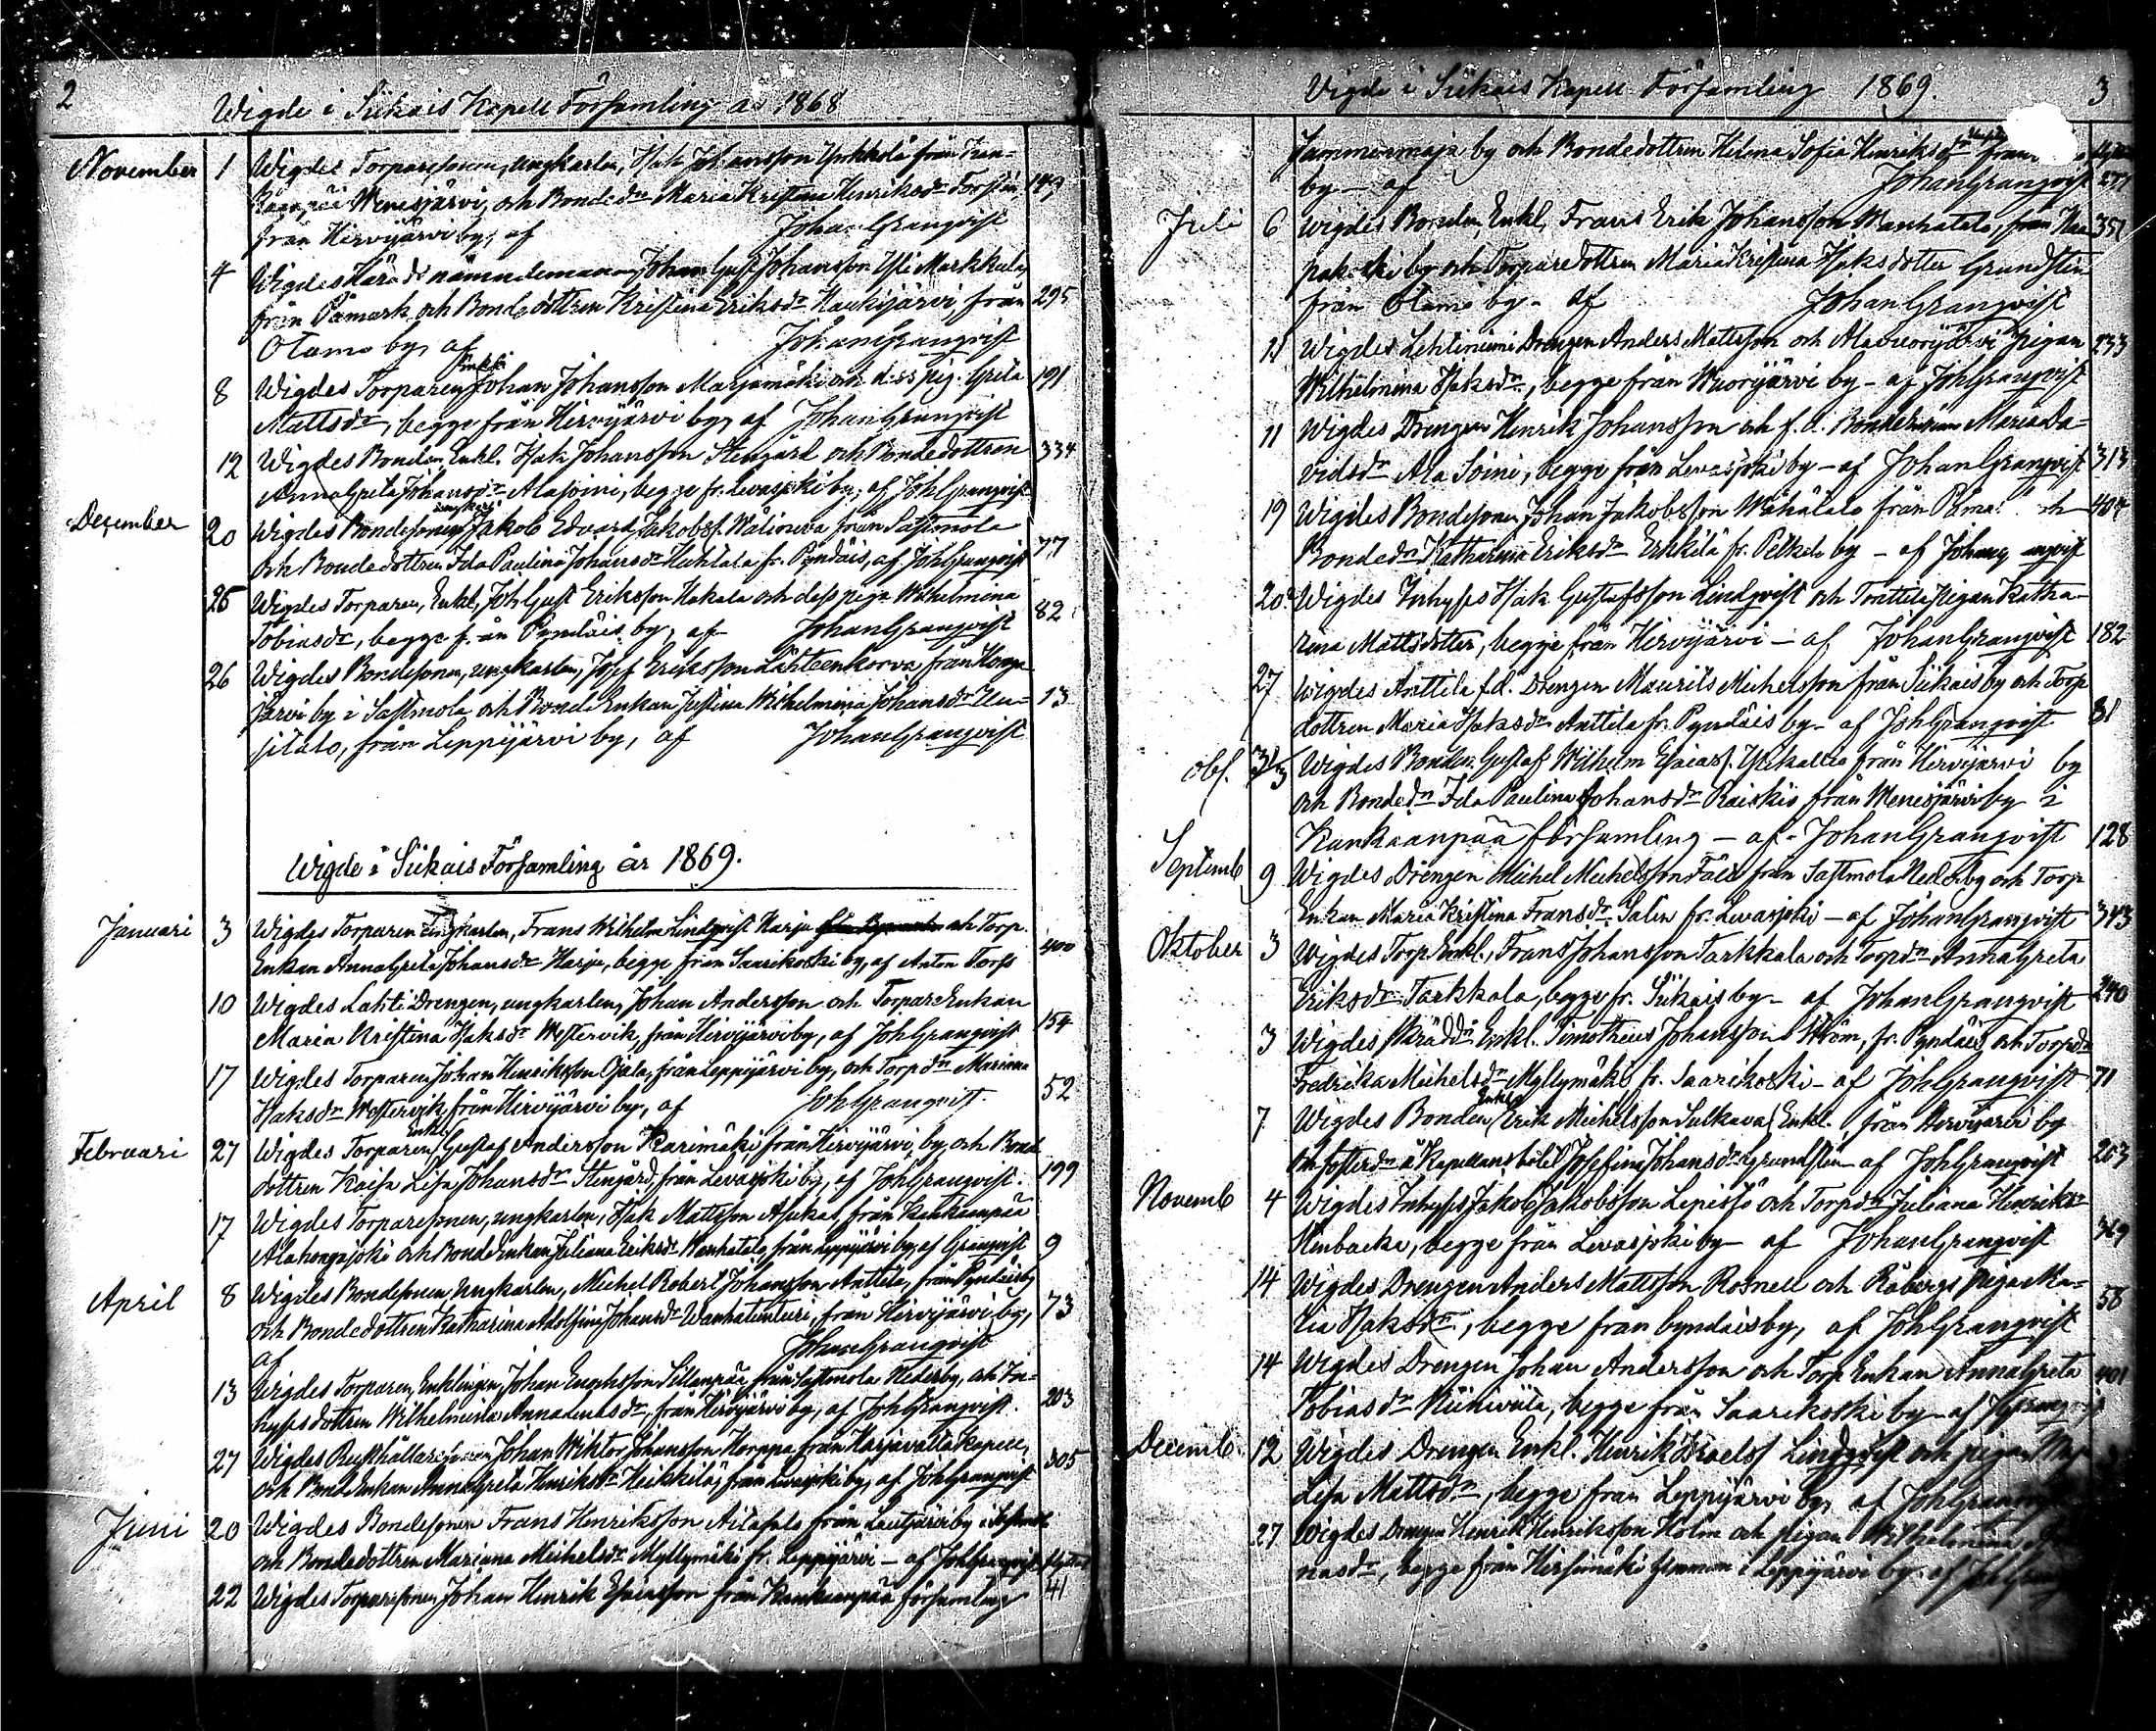 2
Wigde i Siikais Kapell Församling år 1868
November 1 Wigdes Torparesonen, ungkarlen, Isak Johansson Yrkkolä från
Wenesjärvi, och Bondedr Maria Kristina Henriksdr Forsten, 149
från Hirvijärvi by, af Johan Granqvist
4 Wigdes Häradsnämndemannen Johan Gust. Johansson Yli Markkula,
från Påmark och Bondedottren Kristina Eriksdr Haukijärvi, från 295
Otamo by, af Johan Granqvist
Enkl.
8 Wigdes Torparen Johan Johansson Marjamäki och dess pig. Greta 191
Mattsdr, begge från Hirvijärvi by, af Johan Granqvist
12 Wigdes Bonden, Enkl. Isak Johansson Stengård och Bondedottren 334
Anna Greta Johansdr Alasoini, begge fr. Levasjoki by, af Joh Granqvist
ungkarl
December 20 Wigdes Bondesonen Jakob Edvard Jakobss. Wälineva från Sastmola
och Bondedottren Ida Paulina Johansdr Huhtala fr. Pyndäis, af Joh Granqvist 77
25 Wigdes Torparen, Enkl, Joh. Gust Eriksson Hakala och dess piga Wilhelmina
Tobiasdr, begge från Pyndäis by, af Johan Granqvist 82
26 Wigdes Bondesonen, ungkarlen, Josef Eriksson Lähteenkorva från Honga-
järvi by i Sastmola och Bonde Enkan Justina Wilhelmina Johansdr Uu- 13
sitalo, från Leppijärvi by, af Johan Granqvist
Wigde i Siikais Församling år 1869.
Januari 3 Wigdes Torparen ungkarlen, Frans Wilhelm Lindqvist Harju och Torp.
Enkan Anna Greta Johansdr Harju, begge från Saarikoski by, af Anton Forss 400
10 Wigdes Lahti Drengen, ungkarlen, Johan Andersson och Torpare Enkan
Maria Kristina Isaksdr Westervik, från Hirvijärvi by, af Joh Granqvist 154
17 Wigdes Torparen Johan Henriksson Ojala, från Leppijärvi by, och Torpdr Mariana
Isaksdr Westervik, från Hirvijärvi by, af Joh Granqvist. 52
Enkl
Februari 27 Wigdes Torparen Gustaf Andersson Karimäki från Hirvijärvi by och Bond
dottren Kaisa Lisa Johansdr Stengård, från Levasjoki by, af Joh Granqvist. 199
17 Wigdes Torparesonen, ungkarlen, Isak Mattsson Asukas, från Kankaanpää
Alahongajoki och Bond Enkan Juliana Eriksdr Wanhatalo, från Leppijärvi by, af Granqvist 9
April 8 Wigdes Bondesonen, ungkarlen, Michel Robert Johansson Anttila, från Pyndäis by
och Bondedottren Katharina Adolfina Johansdr Wanhatunturi, från Hirvijärvi by, 73
af Johan Granqvist
13 Wigdes Torparen, Enklingen, Johan Enochsson Sillanpää från Sastmola Nederby, och In-
hyses dottren Wilhelmina Annalenasdr, från Hirvijärvi by, af Joh Granqvist. 203
27 Wigdes Rusthållaresonen Johan Wiktor Johansson Korppa från Harjavalta kapell,
och Bond Enkan Anna Greta Henriksdr Heikkilä, från Levasjoki by, af Joh Granqvist 305
Juni 20 Wigdes Bondesonen Frans Henriksson Ailasalo från Lautjärvi by i Sastmola
och Bondedottren Mariana Michelsdr Myllymäki fr. Leppijärvi – af Joh Granqvist flyttad
22 Wigdes Torparesonen Johan Henrik Esaiasson från Kankaanpää församling 41
Wigde i Siikais Kapell Församling 1869. 3
Jammenmaja by och Bondedottren Helena Sofia Henriksdr från
by – af Johan Granqvist 277
Juli 6 Wigdes Bonden, Enkl, Frans Erik Johansson Wanhatalo, från Haa- 351
pakoski by och Torparedottren Maria Kristina Isaksdotter Grundsten
från Otamo by – af Johan Granqvist
11 Wigdes Lehtiniemi Drengen Anders Mattsson och Alavuorijärvi pigan 233
Wilhelmina Isaksdr, begge från Wuorijärvi by – af Joh Granqvist
11 Wigdes Drengen Henrik Johansson och f.d. Bondehustrun Maria Da-
vidsdr Ala Soini, begge från Levasjoki by – af Johan Granqvist 313
19 Wigdes Bondesonen Johan Jakobsson Wähätalo från Påmark och 404
Bondedr Katharina Eriksdr Erkkilä fr. Petkele by – af Johan Granqvist
20 Wigdes Inhyses Isak Gustafsson Lindqvist och Trattila pigan Katha-
rina Mattsdotter, begge från Hirvijärvi – af Johan Granqvist 182
27 Wigdes Anttila f.d. Drengen Maurits Michelsson från Siikais by och Torp
dottren Maria Isaksdr Anttila fr. Pyndäis by – af Joh Granqvist 81
Obs. Wigdes Bonden Gustaf Wilhelm Esaiass. Ylikallio från Hirvijärvi by
och Bondedr Ida Paulina Johansdr Raiskio från Wenesjärvi by i
Kankaanpää församling – af Johan Granqvist 128
Septemb 9 Wigdes Drengen Michel Michelsson Fäll från Sastmola Nederby och Torp
Enkan Maria Kristina Fransdr Salin fr. Levasjoki – af Johan Granqvist 343
Oktober 3 Wigdes Torp Enkl., Frans Johansson Tarkkala och Torpdr Anna Greta
Eriksdr Tarkkala, begge fr. Siikais by – af Johan Granqvist 240
3 Wigdes Skräddn Enkl. Timotheus Johansson Ström, fr. Pyndäis och Torpdr
Fredrika Michelsdr Myllymäki fr. Saarikoski – af Joh Granqvist 71
Enkl
7 Wigdes Bonden Erik Michelsson Sulkava Enkl., från Hirvijärvi by
och fosterdr å Kapellansbolet Josefina Johansdr Grundsten – af Joh Granqvist 203
Novemb 4 Wigdes Inhyses Jakob Jakobsson Lepistö och Torpdr Juliana Henriksdr
Stenbacka, begge från Levasjoki by – af Johan Granqvist 369
14 Wigdes Drengen Anders Mattsson Rosnell och Råbergs piga Ma-
ria Isaksdr, begge från Pyndäis by, af Joh Granqvist 58
14 Wigdes Drengen Johan Andersson och Torp Enkan Anna Greta 401
Tobiasdr Niinivita, begge från Saarikoski by – af J Granqvist
Decemb. 12 Wigdes Drengen Enkl. Henrik Israelss Lindqvist och pigan
Lisa Mattsdr, begge från Leppijärvi by, af Joh Granqvist
27 Wigdes Drengen Henrik Henriksson Holm och pigan Wilhelmina
nasdr, begge från Hirsimäki hemman i Leppijärvi by – af Joh Granqvist